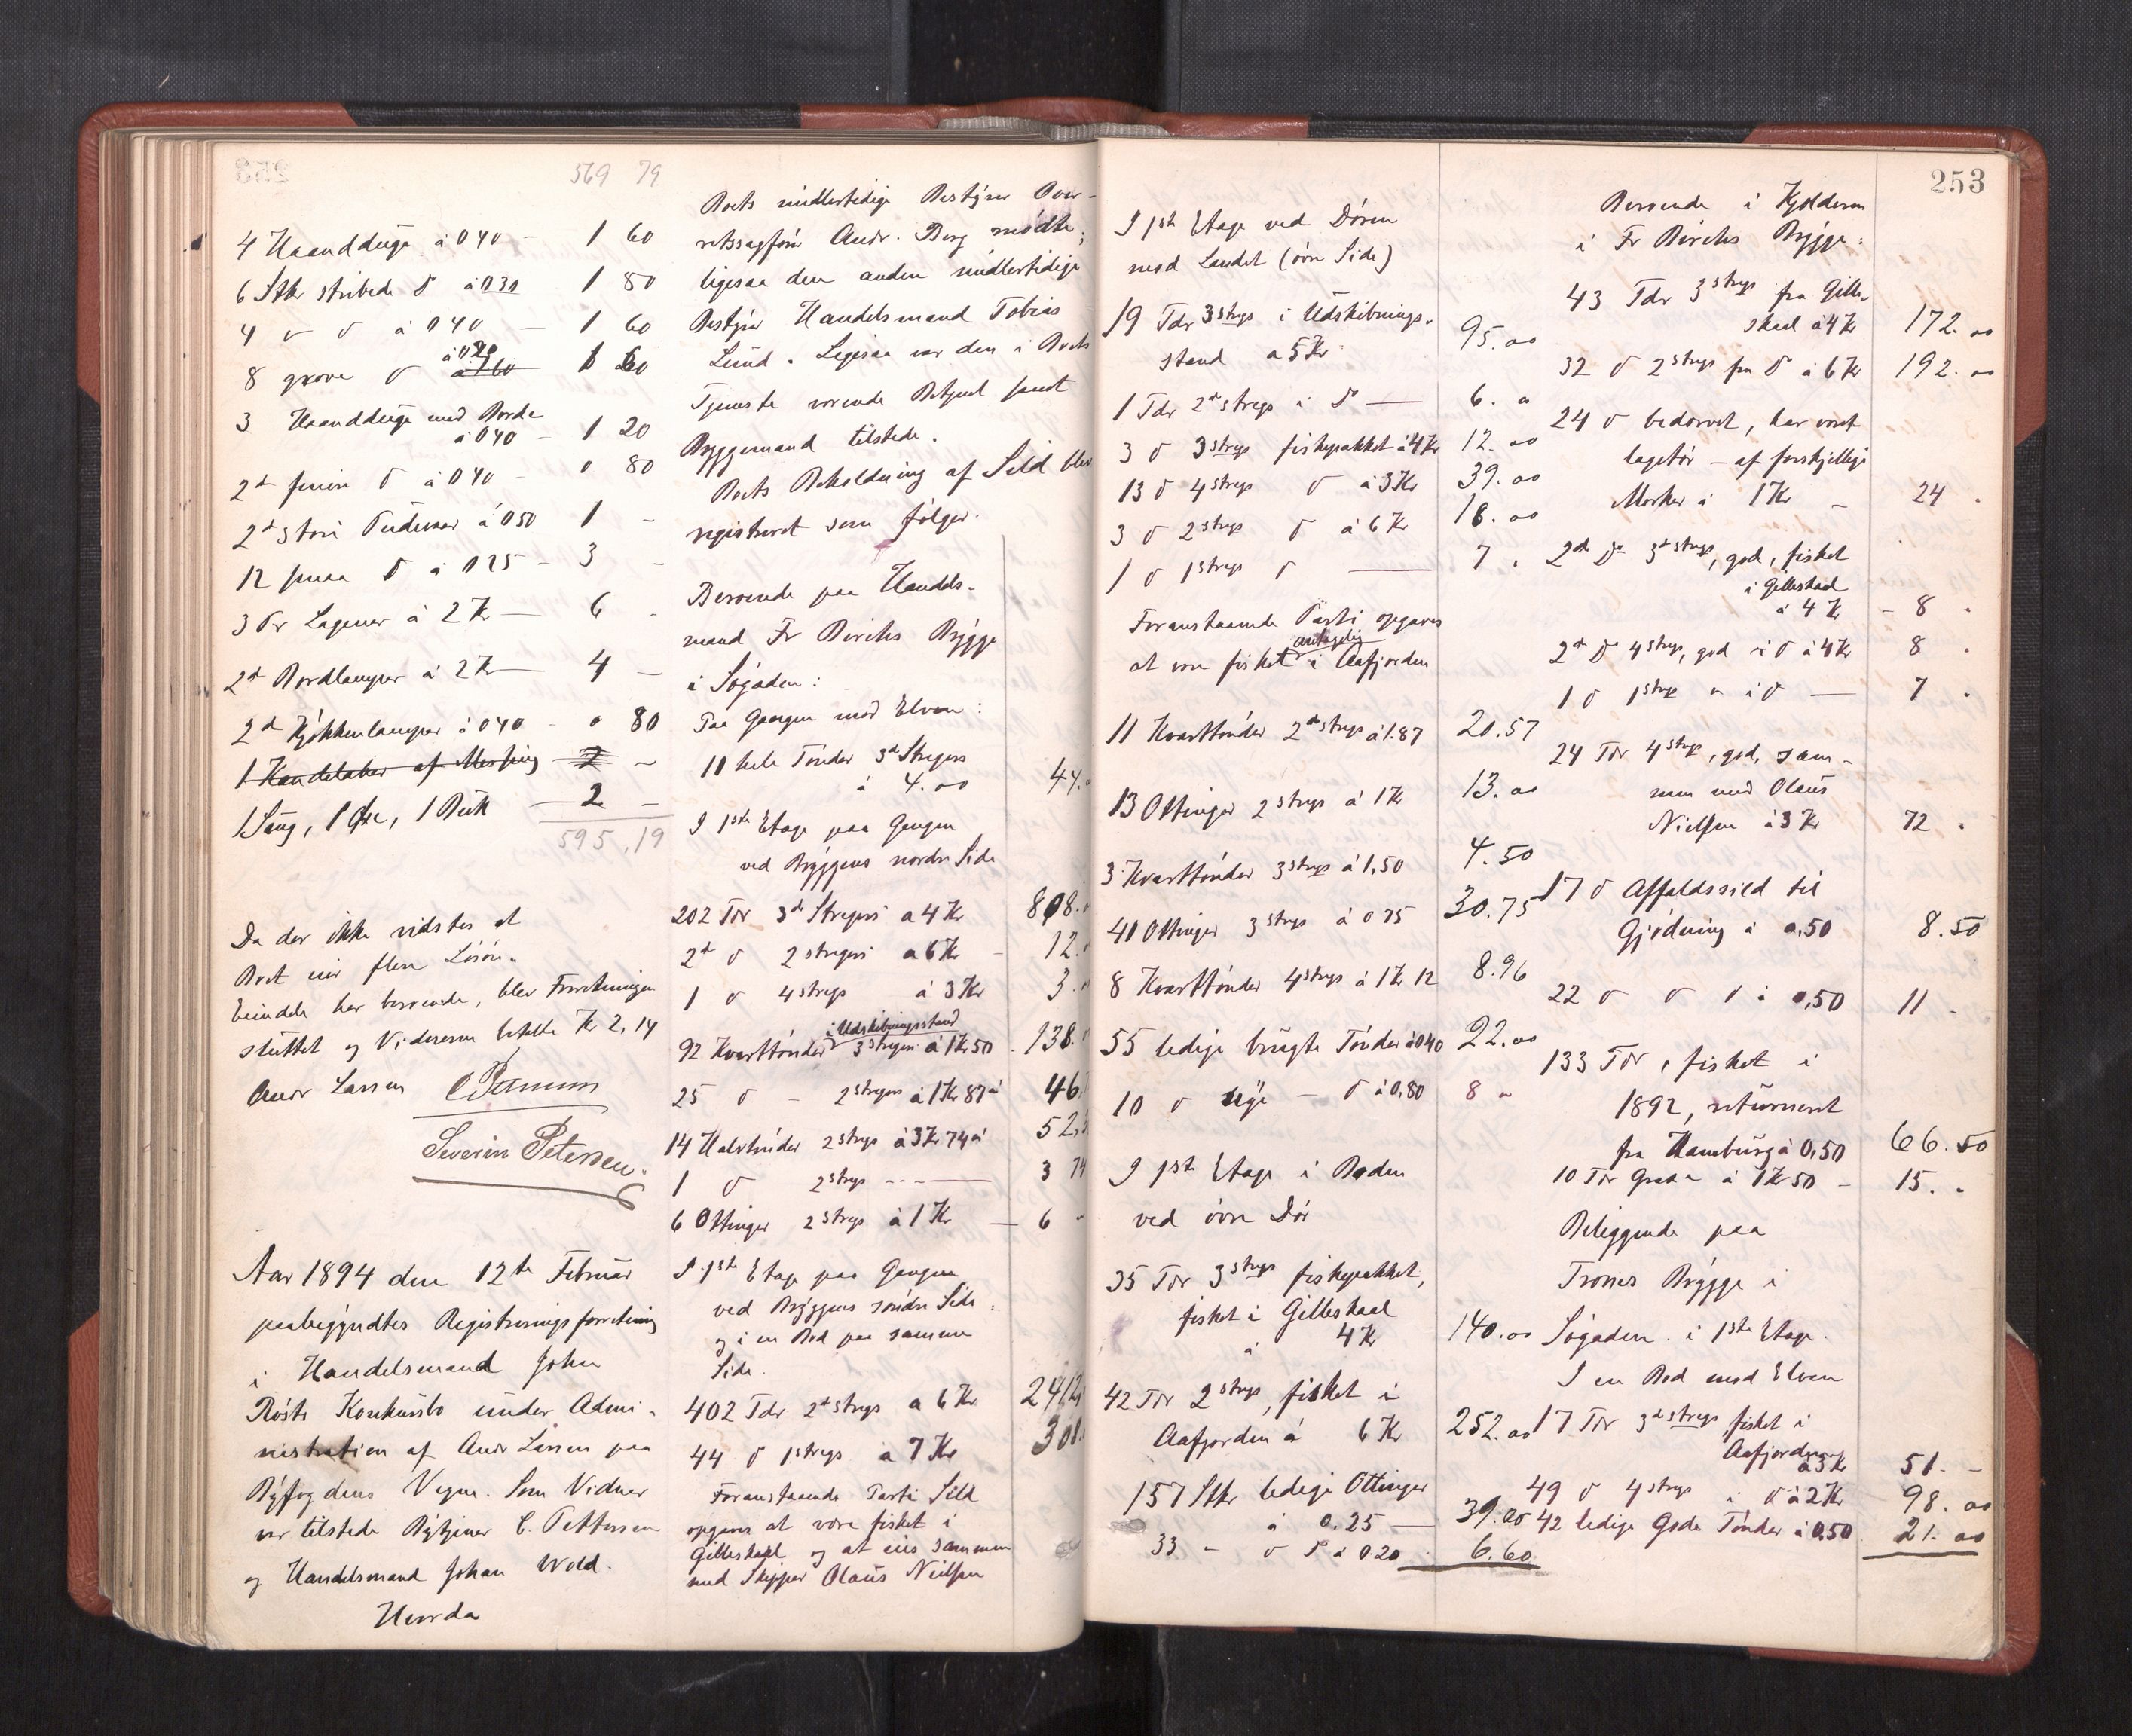 569 79
4 Haandduge à 040 - 1 60
6 Stkr stribede do à 030 1 80
4 " do à 040 - 1 60
8 grove do à 020 1 60
3 Haandduge med Borde
à 040 - 1 20
2de finere do à 040 - 0 80
2de store Pudevaar à 050 1 -
12 smaa do à 025 - 3 -
3 Pr Lagener à 2 Kr - 6 -
2de Bordlamper à 2 Kr - 4 -
2de Kjøkkenlamper à 040 - 0 80
1 Kandelaber af Messing 2 -
1 Saug, 1 Øxe, 1 Buk - 2 -
595,19
Da der ikke vidstes at
Boet var flere Løsøre
Eiendele har beroende, blev Forretningen
sluttet og Viderne betalte Kr 2,14
Andr Larsen
Severin Petersen
Aar 1894 den 12te Februar
paabegyndtes Registreringsforretning
i Handelsmand John
Røsts Konkursbo under Admi-
nistration af Andr Larsen paa
Byfogdens Vegne. Som Vidner
var tilstede Bytjener C. Pettersen
og Handelsmand Johan Wold.
Hvorda
Boets midlertidige Bestyrer Over-
retssagfører Andr. Berg mødte;
ligesaa den anden midlertidige
Bestyrer Handelsmand Tobias
Lund. Ligesaa var den i Boets
Tjeneste værende Betjent samt
Bryggemand tilstede.
Boets Beholdning af Sild blev
registreret som følger.
Beroende paa Handels-
mand Fr Birchs Brygge
i Søgaden:
Paa Gangen mod Elven:
11 hele Tønder 3de Stregers
à 4.00 44.
I 1ste Etage paa Gangen
ved Bryggens nordre Side
202 Tdr 3de Stregers a 4 Kr 808.
2de do 2 stregers a 6 Kr - 12.
1 do 4 stregs à 3 Kr 3.
i Udskibningsstand
92 Kvarttønder 3 stregers à 1 Kr 50 138.
25 do - 2 stregers à 1 Kr 87 à 46.
14 Halvtønder 2 stregs à 3 Kr 74 à 52,
1 do 2 stregs - - - 3 74
6 Ottinger 2 stregs à 1 Kr - 6 -
I 1ste Etage paa Gangen
ved Bryggens søndre Side
og i en Bod paa samme
Side.
402 Tdr 2de stregs a 6 Kr 2412
44 do 1 stregs a 7 Kr 308.
Foranstaaende Parti Sild
opgaves at være fisket i
Gilleskaal og at eies sammen
med Skipper Olaus Nielsen
253
I 1ste Etage ved Døren
mod Landet (øvre Side)
19 Tdr 3 stregs i Udskibnings-
stand a 5 Kr 95.00
1 Tdr 2de stregs i do - 6. "
3 do 3 stregs fiskepakket à 4 Kr 12.00
13 do 4 stregs do à 3 Kr 39.00
3 do 2 stregs do à 6 Kr 18.00
1 do 1 stregs do - 7 .
Foranstaaende Parti opgaves
at være fisket antagelig i Aafjorden
11 Kvarttønder 2de stregs à 1.87 20.57
13 Ottinger 2 stregs à 1 Kr 13.00
3 Kvarttønder 3 stregs à 1,50 4.50
41 Ottinger 3 stregs à 0 75 30.75
8 Kvarttønder 4 stregs à 1 Kr 12 8.96
55 ledige brugte Tønder à 040 22.00
10 do nye - do à 0,80 8 "
I 1ste Etage i Boden
ved øvre Dør
35 Tdr 3 stregs fiskepakket,
fisket i Gilleskaal
à 4 Kr 140.00
42 Tdr 2 stregs, fisket i
Aafjorden à 6 Kr 252.00
157 Stkr ledige Ottinger
à 0.25 - 39.25
33 - do do à 020 6.60
Beroende i Kjelderen
i Fr Birchs Brygge:
43 Tdr 3 stregs fra Gille-
skaal à 4 Kr 172.00
32 do 2 stregs fra do à 6 Kr 192.00
24 do bedærvet, har været
lagetør - af forskjellige
Mærker à 1 Kr - 24 .
2de do 3de stregs, god, fisket
i Gilleskaal
à 4 Kr - 8 -
2de do 4 stregs, god i do à 4 Kr 8 .
1 do 1 stregs " i do - 7 .
24 Tdr 4 stregs, god, sam-
men med Olaus
Nielsen à 3 Kr 72 .
17 do Affaldssild til
Gjødning à 0,50 8.50
22 do do do à 0,50 11 -
133 Tdr, fisket i
1892, returneret
fra Hamburg à 0,50 66.50
10 Tdr à 1 Kr 50 - 15. .
Beliggende paa
Trones Brygge i
Søgaden i 1ste Etage.
I en Bod mod Elven
17 Tdr 3de stregs fisket i
Aafjorden
à 3 Kr 51. -
49 do 4 stregs i do à 2 Kr 98.00
42 ledige gode Tønder à 0,50 21.00